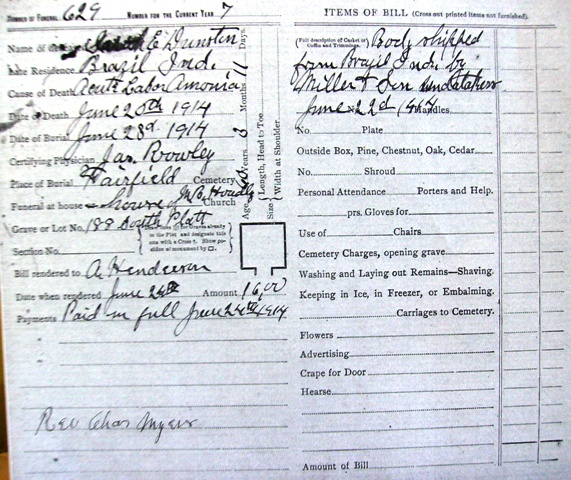 NUMBER OF FUNERAL 629 NUMBER FOR THE CURRENT YEAR 7
Name of E Dunstin
Late Residence Brazil Ind.
Cause of Death Acute Labor
Date of Death June 20th 1914
Date of Burial June 23d, 1914
Certifying Physician Jas Rowley
Place of Burial Fairfield Cemetery
Funeral at house Church
Grave or Lot No. 188 South Platt
(Draw lines for Graves already in the Plot and designate this one with a Cross †. Show position of monument by □.
Section No.
Bill rendered to A. Henderson
Date when rendered June 24th Amount 16.00
Payments Paid in full June 24th 1914
Rev Chas Myers
Age Years 3 Months 11 Days.
Size Length, Head to Toe.
Width at Shoulder.
ITEMS OF BILL (Cross out printed items not furnished).
(Full description of Casket or Coffin and Trimmings. Body shipped
from Brazil Ind. by
Miller & Son Undertakers
June 22d 1914 Handles
No. Plate
Outside Box, Pine, Chestnut, Oak, Cedar
No. Shroud
Personal Attendance Porters and Help.
prs. Gloves for
Use of Chairs
Cemetery Charges, opening grave
Washing and Laying out Remains—Shaving.
Keeping in Ice, in Freezer, or Embalming.
Carriages to Cemetery.
Flowers
Advertising
Crape for Door
Hearse
Amount of Bill